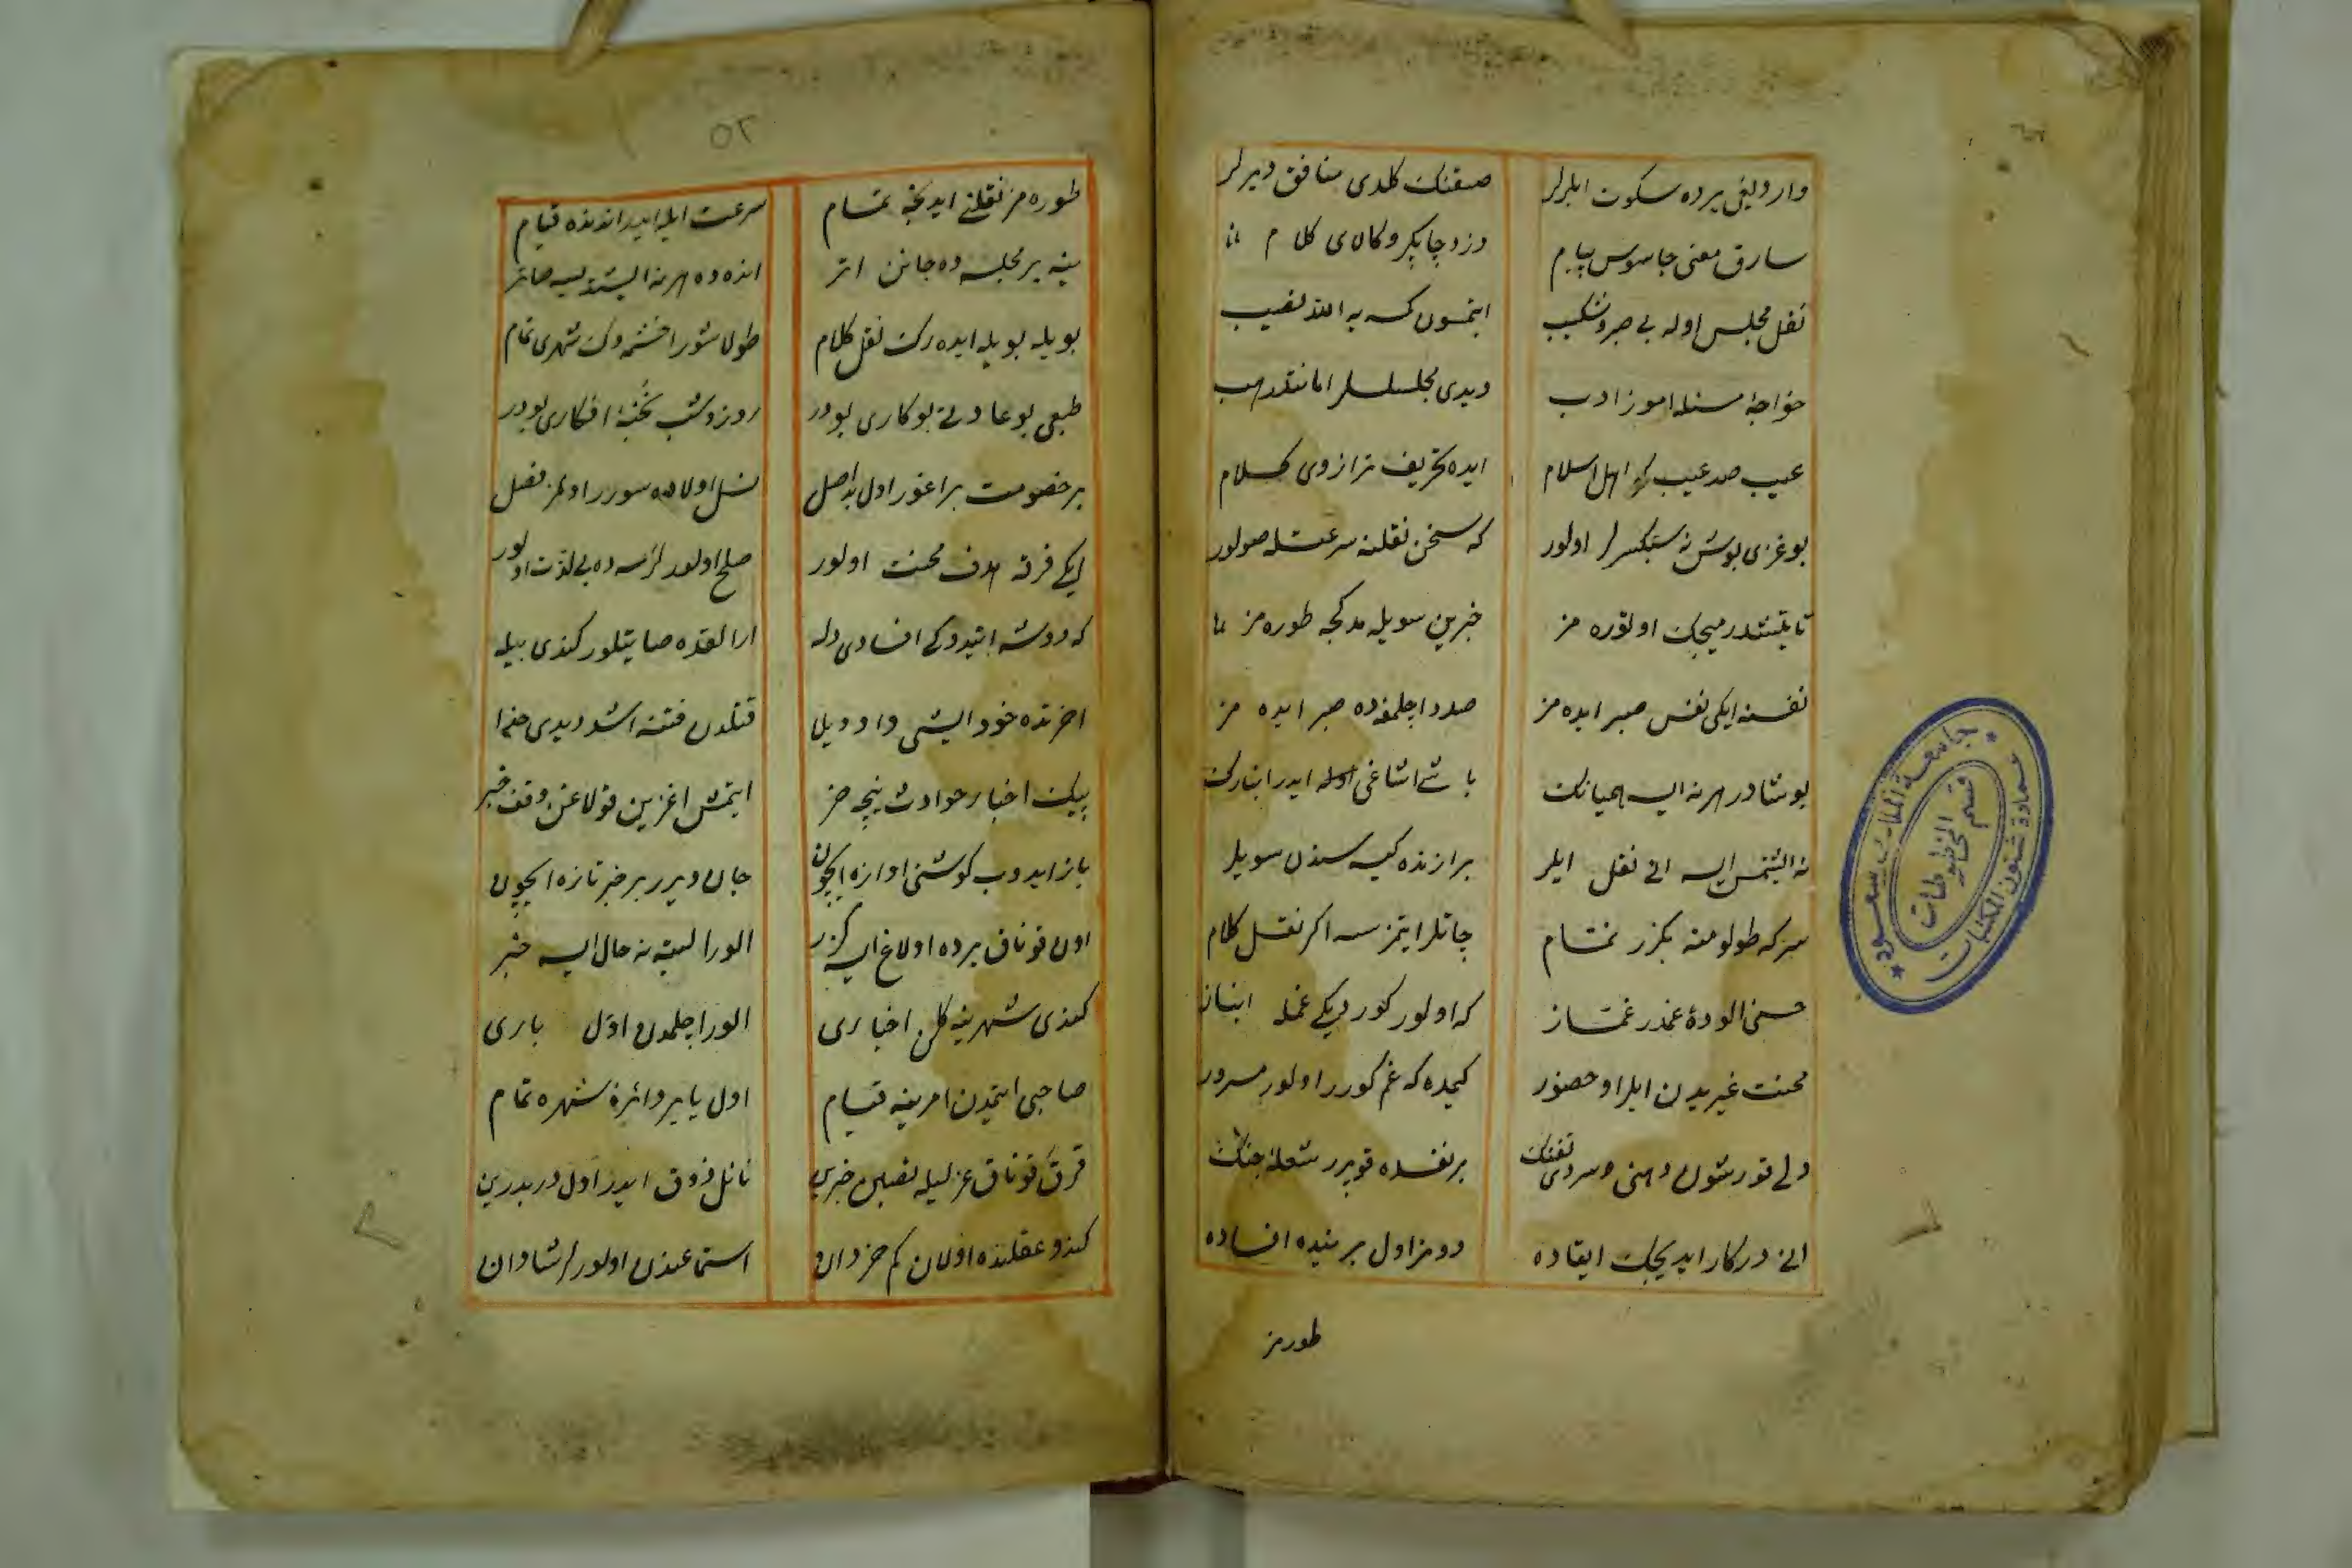 واردیغی یرده سکوت ایلرلر
صقنک کلدی منافق دیرلر
سارق معنی جاسوس پیام
دزد چاپکرو کالای کلام
نقل مجلس اوله بی صبر و شکیب
ایتمسون کمسه یه الله نصیب
خواجهٔ مسئله اموز ادب
دیدی مجلسلر امانتدر هب
عیب صد عیب که اهل اسلام
ایده تحریف ترازوی کلام
بوغزی بوش نه سبکسرلر اولور
که سخن نقلنه سرعتله صولور
اولتوره مز
خبرین سویلمدکجه طوره مز
نفسنه ایکی نفس صبر ایده مز
صدد اچلمغه ده صبر ایده مز
بوشادر هر نه ایسه همیانک
باشی اشاغی ایدر انبارک
نه ایشتمس ایسه انی نقل ایلر
برازنده کیسه سندن سویلر
سرکه طولومنه بکزر نمام
چاتلر ایتمزسه اکر نقل کلام
حسنی الودهٔ غمدر غماز
که اولور کور دیکی غمله انباز
محنت غیریدن ایلر او حضور
کیمده که غم کورر اولور مسرور
دهنی سردی تفنک
بر نفسده قوپرر شعلهٔ جنک
انی درکار ایدیجک ایقاده
دومز اول بر ینیده افساده
طورمز
٥٢
طوره مز نقلنی ایدنجه تمام
سرعت ایله ایدر اندنده قیام
ینه بر مجلسه ده جانن اتر
انده ده هر نه ایشتدیسه صاتر
بویله بویله ایده رک نقل کلام
طولاشور اخشمه دک شهری تمام
طبعی بو عادتی بو کاری بودر
روز و شب نخبهٔ افکاری بودر
بر خصومت براغور اول بد اصل
نسل اولاده سورر اولمز فصل
ایکی فرقه هدف محنت اولور
صلح اولورلرسه ده بی لذت اولور
که دوشه ایتدوکی افسادی دله
ارالقده صایتلور کندی بیله
اخرنده خود ایشی واویلا
قتلدن فتنه اشد دیدی خدا
پیک اخبار حوادث نیچه خر
ایتمش اغزین قولاغن وقف خبر
باز ایدوب کوشنی اوازه ایچون
جان ویرر بر خبر تازه ایچون
اون قوناق یرده اولاغ ایسه کزر
الور البته نه حال ایسه خبر
کندی شهرینه کلن اخباری
الور اچلمدن اول باری
صاحبی ایتمدن امرینه قیام
اول یایر دائرهٔ شهره تمام
قرق قوناق عزلیله نصبین خبرین
نائل ذوق ایدر اول دربدرین
کندو عقلنده اولان کم خردان
استماعندن اولورلر شادان
جامعة الملك سعود
عمادة شئون المكتبات
قسم المخطوطات